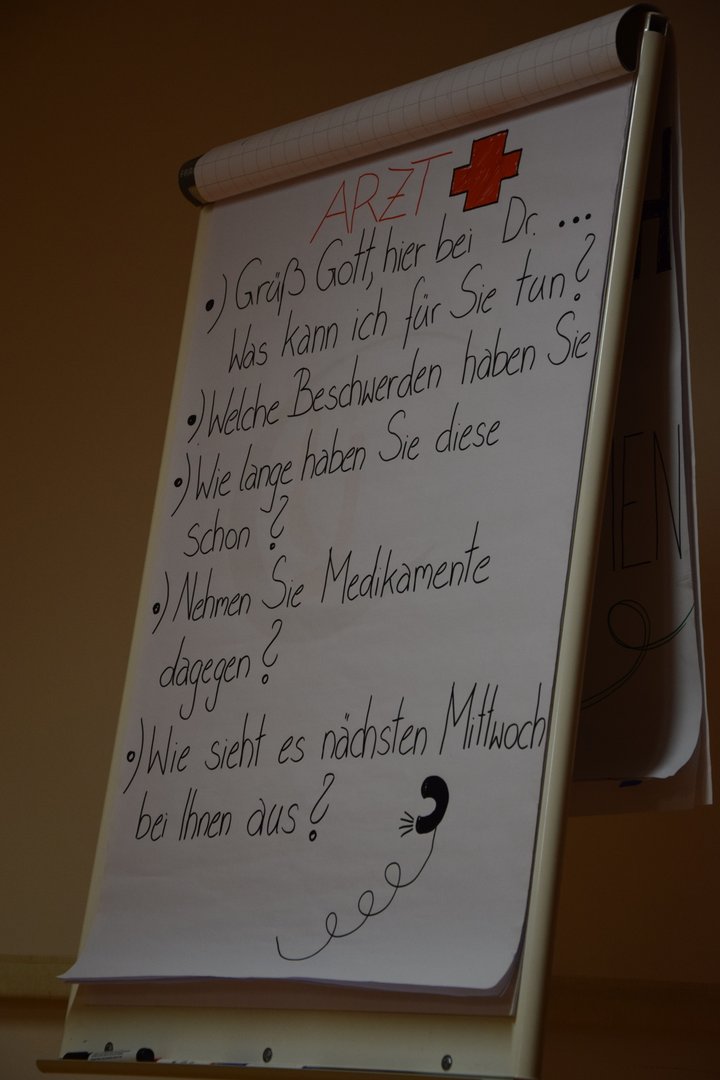 ARZT
•) Grüß Gott, hier bei Dr. ...
Was kann ich für Sie tun?
•) Welche Beschwerden haben Sie
•) Wie lange haben Sie diese
schon?
•) Nehmen Sie Medikamente
dagegen?
•) Wie sieht es nächsten Mittwoch
bei Ihnen aus?